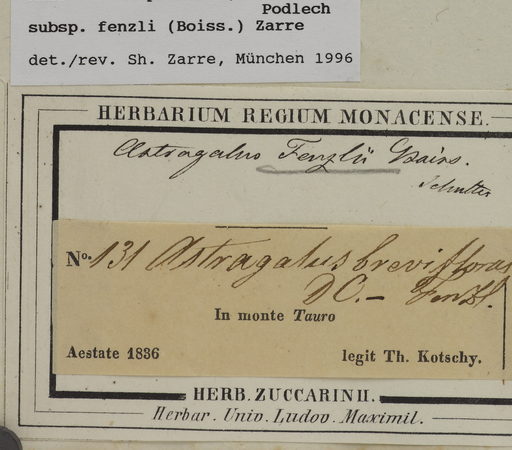 Podlech
subsp. fenzli (Boiss.) Zarre
det./rev. Sh. Zarre, München 1996
HERBARIUM REGIUM MONACENSE.
Astragalus Fenzlii Boiss.
Nº. 131 Astragalus breviflorus
DC. – Fenzl.
In monte Tauro
Aestate 1836
legit Th. Kotschy.
HERB. ZUCCARINII.
Herbar. Univ. Ludov. Maximil.